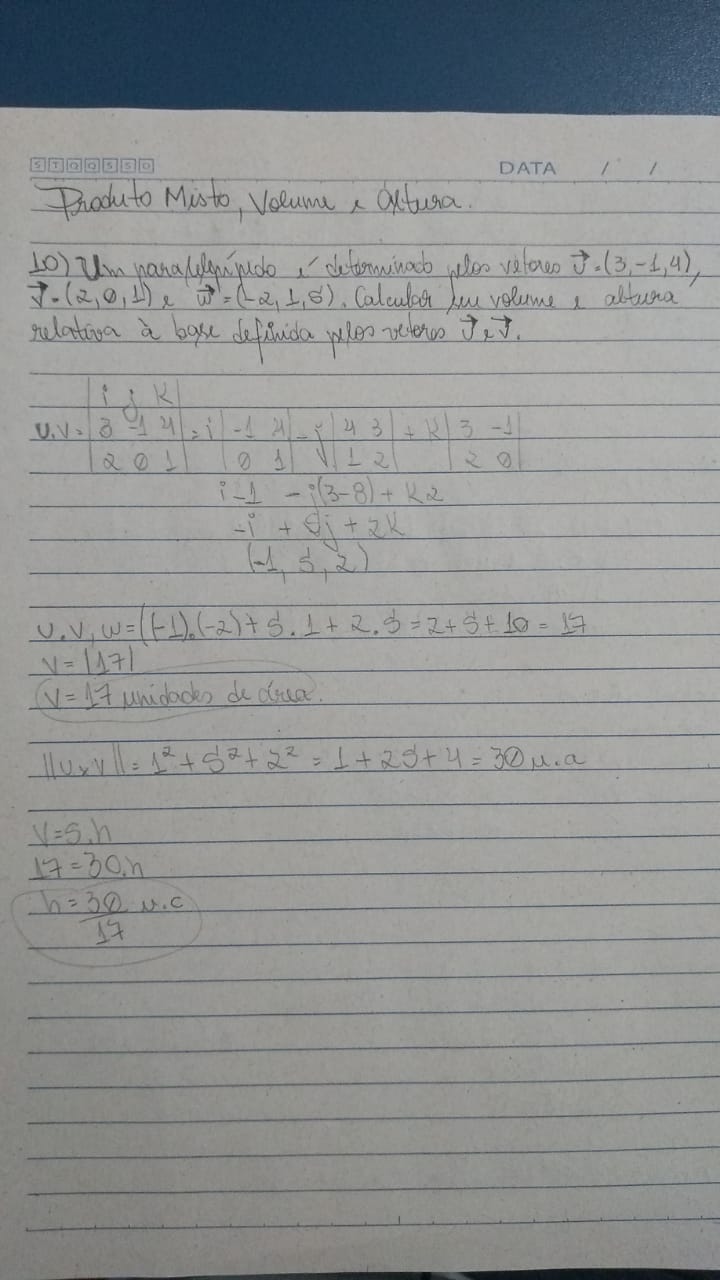 S T Q Q S S D
DATA / /
Produto Misto, Volume e Altura.
10) Um paralelepípedo é determinado pelos vetores v⃗=(3,-1,4),
v⃗=(2,0,1) e w⃗=(-2,1,5). Calcular seu volume e altura
relativa à base definida pelos vetores v⃗ e v⃗.
|i j k|
U.V= |3 -1 4| = i |-1 4| - j |4 3| + k |3 -1|
|2 0 1| |0 1| |1 2| |2 0|
i-1 - j(3-8) + k2
-i + 5j + 2k
(-1, 5, 2)
U.V, W=((-1).(-2)+5.1+2.5=2+5+10=17
V=|17|
V=17 unidades de área.
||UxV||=1²+5²+2²=1+25+4=30 u.a
V=S.h
17=30.h
h=30 u.c
17